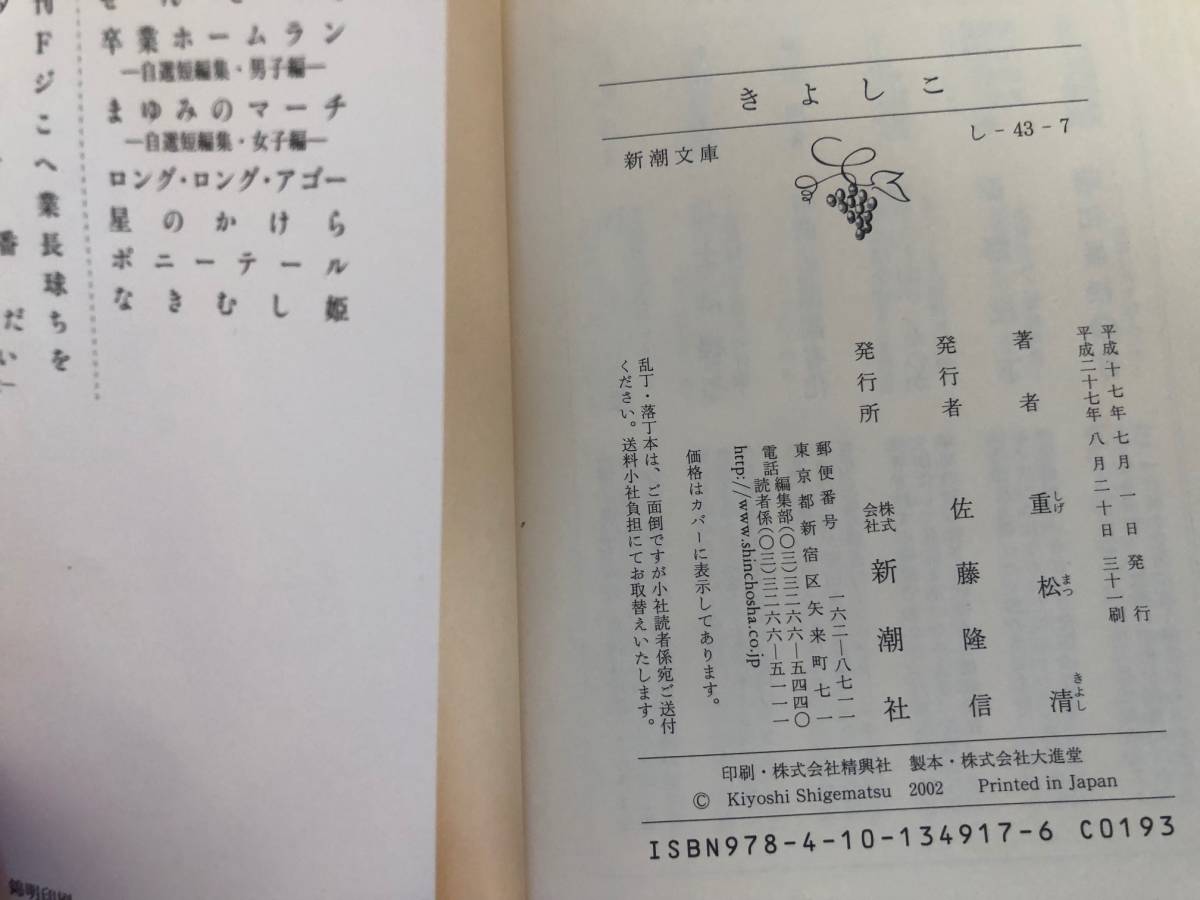 卒業ホームラン
―自選短編集・男子編―
まゆみのマーチ
―自選短編集・女子編―
ロング・ロング・アゴー
星のかけら
ポニーテール
なきむし姫
きよしこ
新潮文庫
し-43-7
平成十七年七月一日発行
平成二十七年八月二十日三十一刷
著者 重松清
しげ まつ きよし
発行者 佐藤隆信
発行所 株式会社 新潮社
郵便番号 一六二―八七一一
東京都新宿区矢来町七一
電話 編集部(〇三)三二六六―五四四〇
読者係(〇三)三二六六―五一一一
http://www.shinchosha.co.jp
価格はカバーに表示してあります。
乱丁・落丁本は、ご面倒ですが小社読者係宛ご送付
ください。送料小社負担にてお取替えいたします。
印刷・株式会社精興社 製本・株式会社大進堂
© Kiyoshi Shigematsu 2002 Printed in Japan
ISBN978-4-10-134917-6 C0193